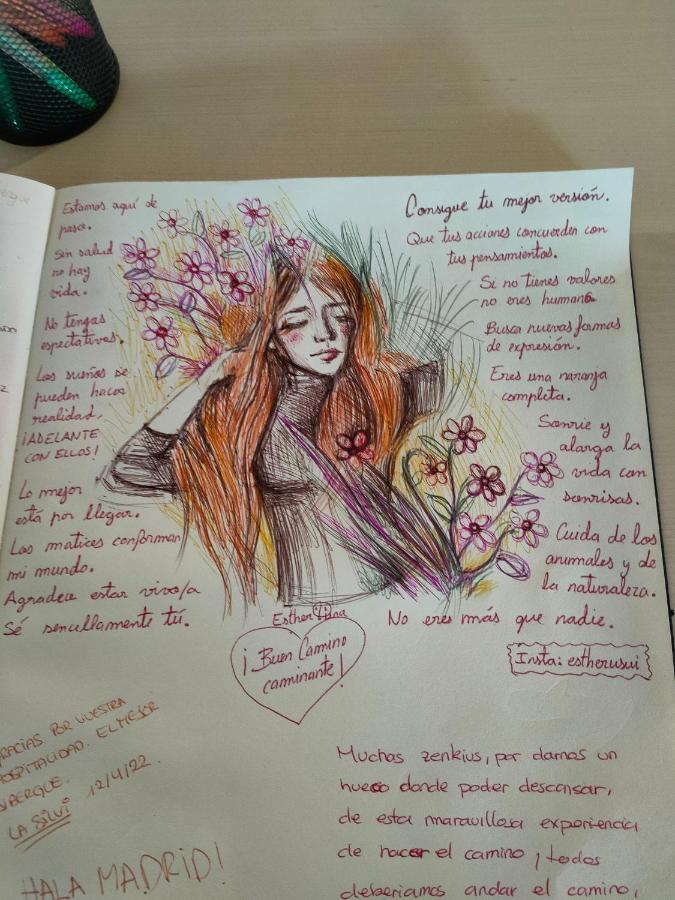 Estamos aquí de
paso.
Sin salud
no hay
vida.
No tengas
espectativas.
Los sueños se
pueden hacer
realidad,
¡ADELANTE
CON ELLOS!
Lo mejor
está por llegar.
Los matices conforman
mi mundo.
Agradece estar vivo/a
Sé sencillamente tú.
Consigue tu mejor versión.
Que tus acciones concuerden con
tus pensamientos.
Si no tienes valores
no eres humano.
Busca nuevas formas
de expresión.
Eres una naranja
completa.
Sonríe y
alarga la
vida con
sonrisas.
Cuida de los
animales y de
la naturaleza.
No eres más que nadie.
Esther
¡Buen Camino
caminante!
Insta: estherusui
GRACIAS POR VUESTRA
HOSPITALIDAD. EL MEJOR
ALBERGUE.
LA SILVI 12/4/22.
HALA MADRID!
Muchas zenkius, por darnos un
hueco donde poder descansar,
de esta maravillosa experiencia
de hacer el camino, ¡todos
deberiamos andar el camino,